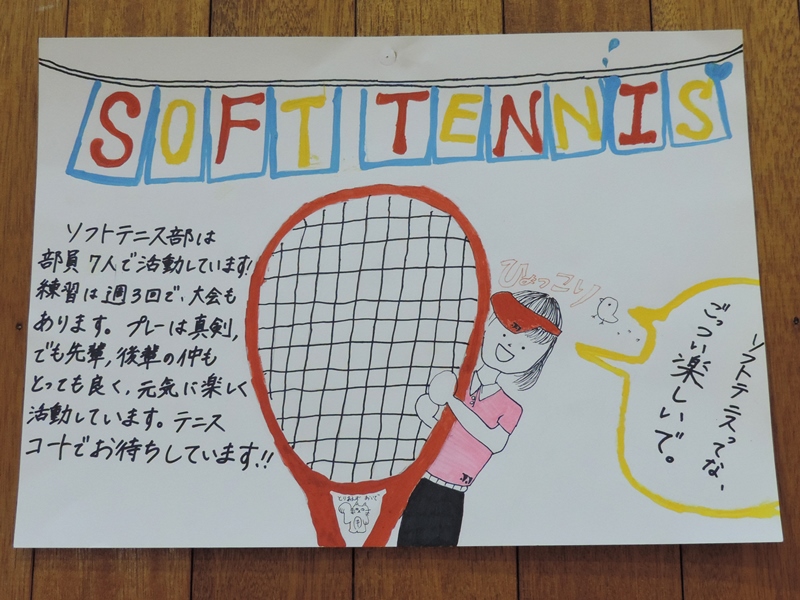 SOFT TENNIS
ソフトテニス部は
部員7人で活動しています!
練習は週3回で、大会も
あります。プレーは真剣,
でも先輩,後輩の仲も
とっても良く、元気に楽しく
活動しています。テニス
コートでお待ちしています!!
ひょっこり
ソフトテニスってな、
ごっつい楽しいで。
とりあえず おいで